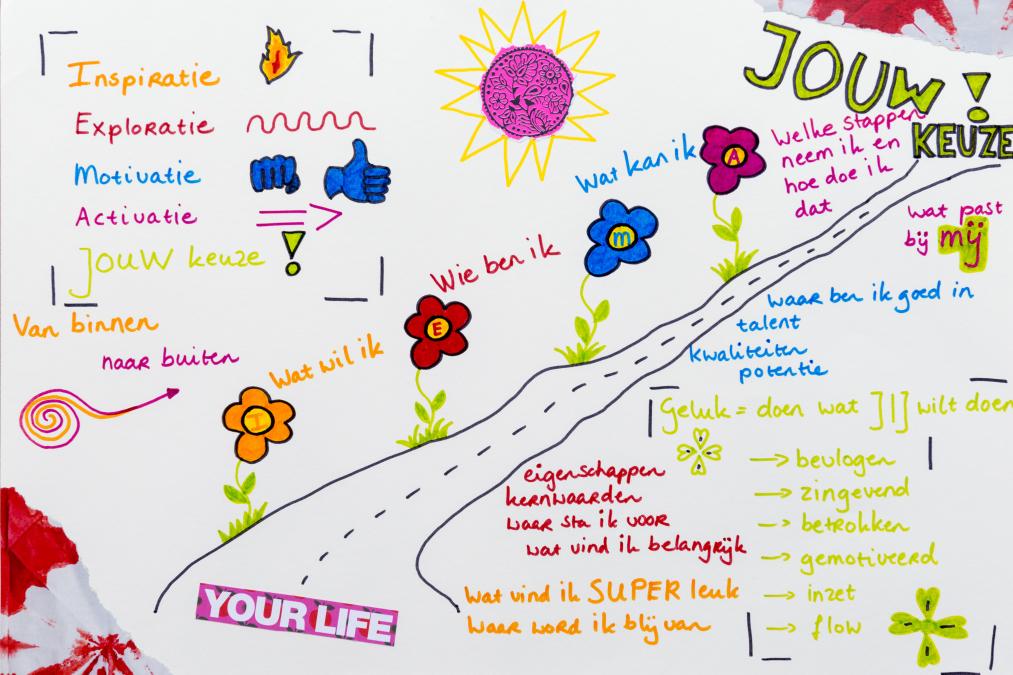 Inspiratie
Exploratie
Motivatie
Activatie
JOUW keuze !
Van binnen
naar buiten
JOUW !
KEUZE
Wat wil ik
I
Wie ben ik
E
Wat kan ik
M
A
Welke stappen
neem ik en
hoe doe ik
dat
wat past
bij mij
waar ben ik goed in
talent
kwaliteiten
potentie
eigenschappen
kernwaarden
waar sta ik voor
wat vind ik belangrijk
Wat vind ik SUPER leuk
Waar word ik blij van
YOUR LIFE
Geluk = doen wat JIJ wilt doen
→ bevlogen
→ zingevend
→ betrokken
→ gemotiveerd
→ inzet
→ flow